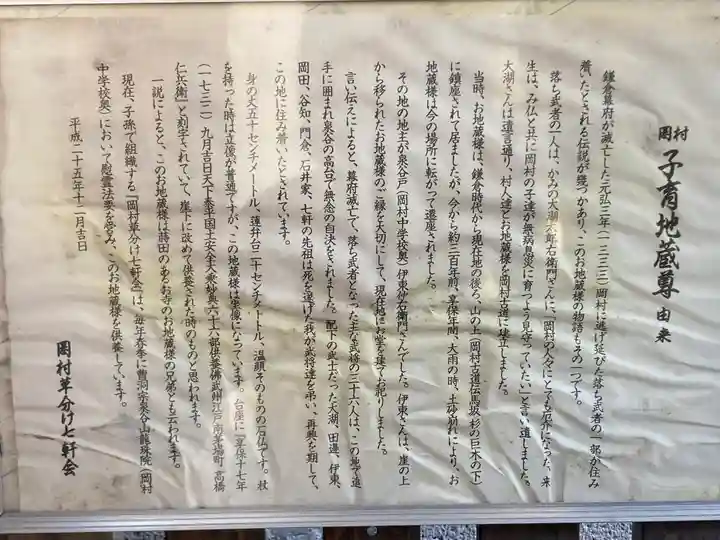 岡村 子育地蔵尊 由来
鎌倉幕府が滅亡した元弘三年(一三三三)岡村に逃げ延びた落ち武者の一部が住み
着いたとされる伝説が幾つかあり、このお地蔵様の物語もその一つです。
落ち武者の一人は、かみの大湖六郎右衛門さんに、岡村の人々にとても厄介になった、来
生は、み仏と共に岡村の子達が無病息災に育つよう見守っていたい」と言い遺しました。
大湖さんは遺言通り、村人達とお地蔵様を岡村古道に建立しました。
当時、お地蔵様は、鎌倉時代から現在地の後ろ、山の上(岡村古道伝馬坂、杉の巨木の下)
に鎮座されて居ましたが、今から約三百年前、享保年間、大雨の時、土砂崩れにより、お
地蔵様は今の場所に転がって遷座されました。
その地の地主が泉谷戸(岡村中学校奥)伊東仲右衛門さんでした。伊東さんは、崖の上
から移られたお地蔵様のご縁を大切にして、現在地にお堂を建てお祀りしました。
言い伝えによると、幕府滅亡で、落ち武者となった主な武将の三十六人は、この地で追
手に囲まれ泉谷の高台で無念の自決をされました。配下の武士だった大湖、田邊、伊東、
岡田、谷知、門倉、石井家、七軒の先祖は死を遂げた我が武将達を弔い、再興を期して、
この地に住み着いたとされています。
身の丈五十センチメートル、蓮弁台二十センチメートル、温顔そのものの石仏です。杖
を持った時は立像が普通ですが、この地蔵様は坐像になっています。台座に「享保十七年
(一七三二)九月吉日天下泰平国土安全大乗妙典六十六部供養佛武州江戸南茅場町高橋
仁兵衛」と刻字されていて、崖下に改めて供養された時のものと思われます。
一説によると、このお地蔵様は蒔田のあるお寺のお地蔵様の兄弟とも云われます。
現在、子孫で組織する「岡村草分け七軒会」は、毎年春季に曹洞宗泉谷山龍珠院(岡村
中学校奥)において慰霊法要を営み、このお地蔵様を供養しています。
平成二十五年十二月吉日
岡村草分け七軒会